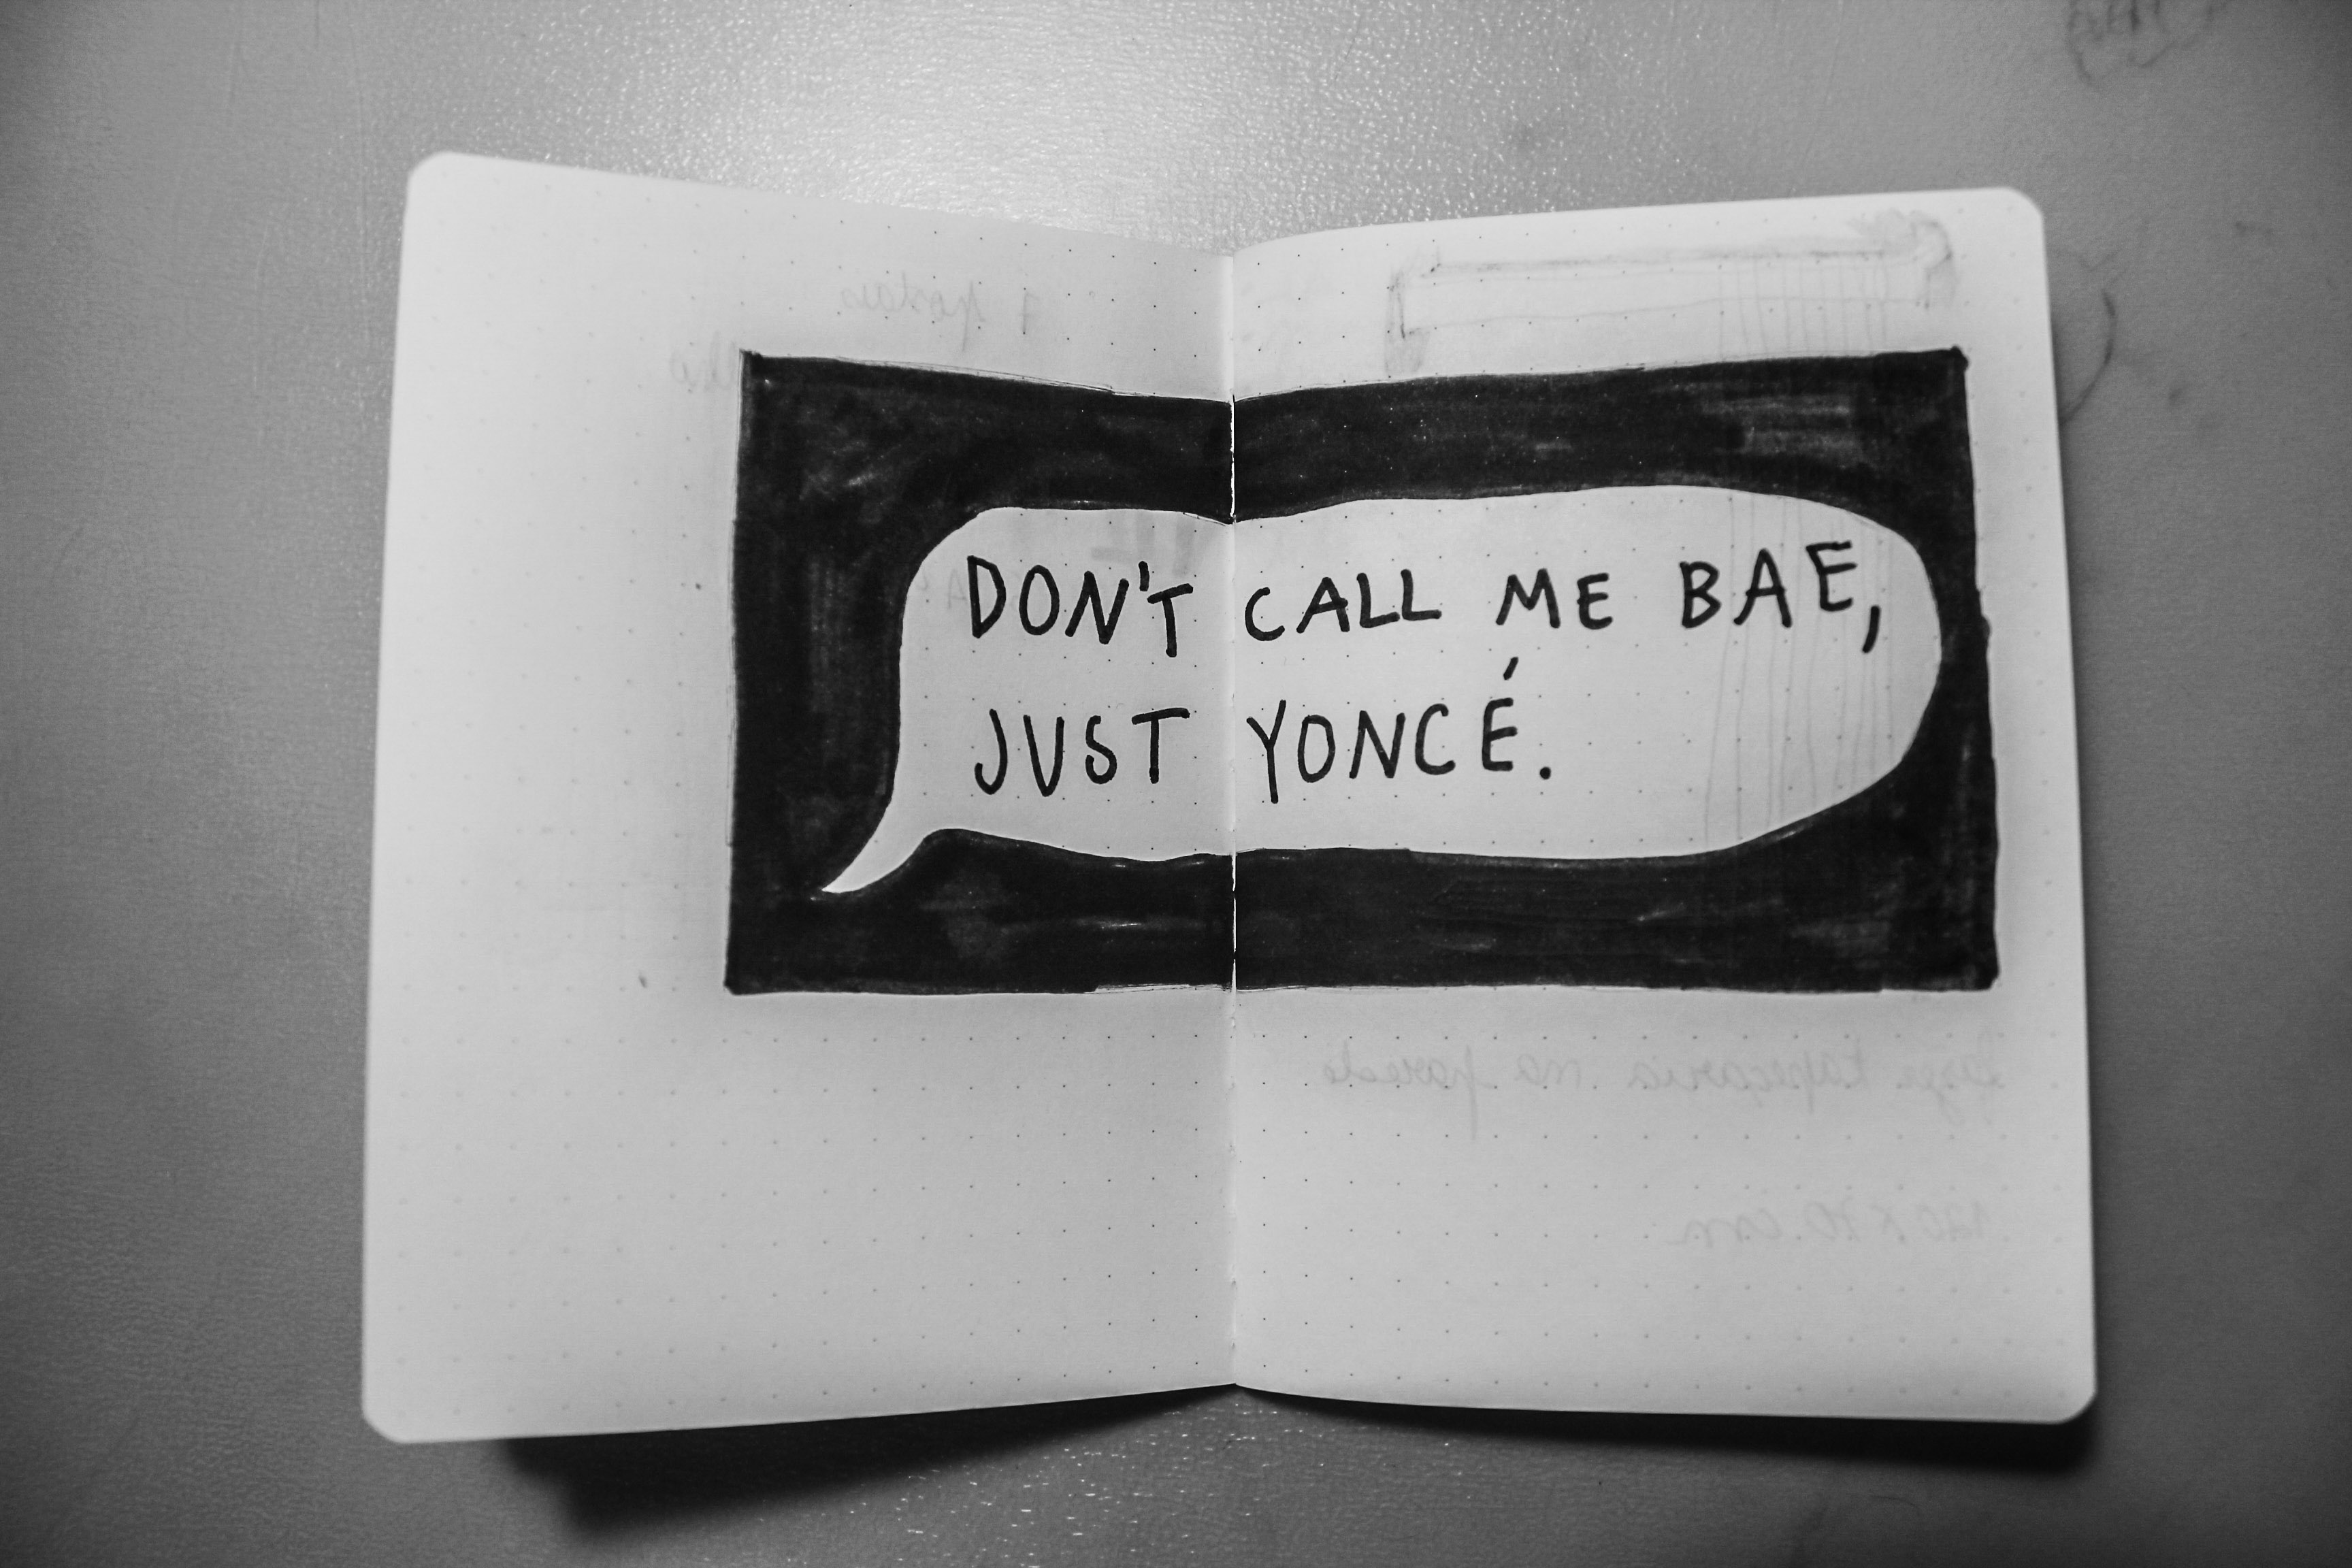 DON'T CALL ME BAE,
JUST YONCÉ.